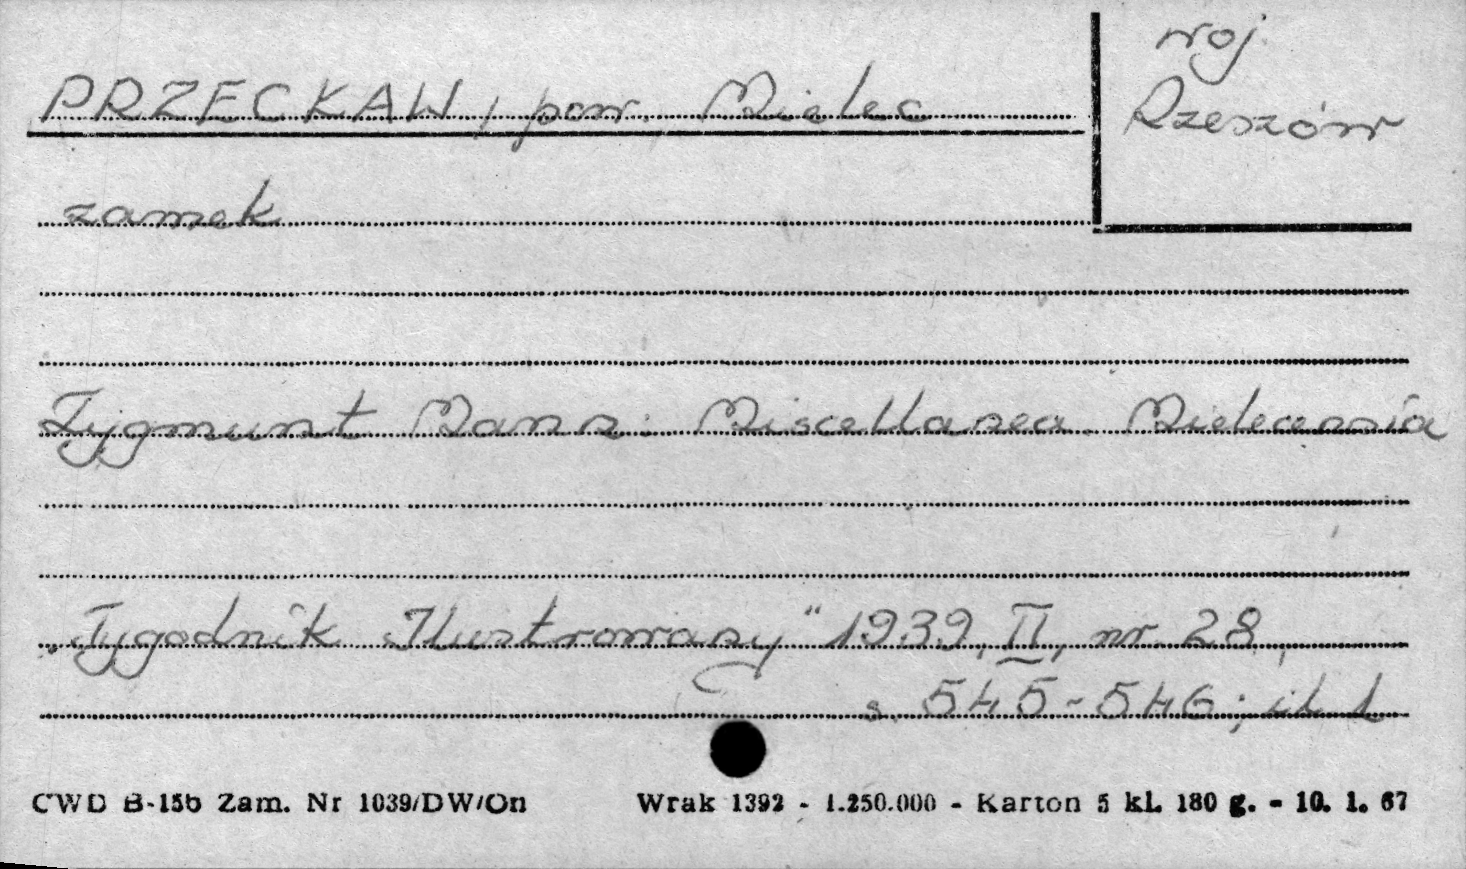 PRZECKAW, pow. Mielec
woj. Rzeszów
zamek
Zygmunt Mann: Miscellanea Mielecensia
„Tygodnik Ilustrowany" 1939, II, nr 28,
s. 545-546; il. 1
CWD B-15b Zam. Nr 1039/DW/On Wrak 1392 - 1.250.000 - Karton 5 kl. 180 g. - 10. 1. 67